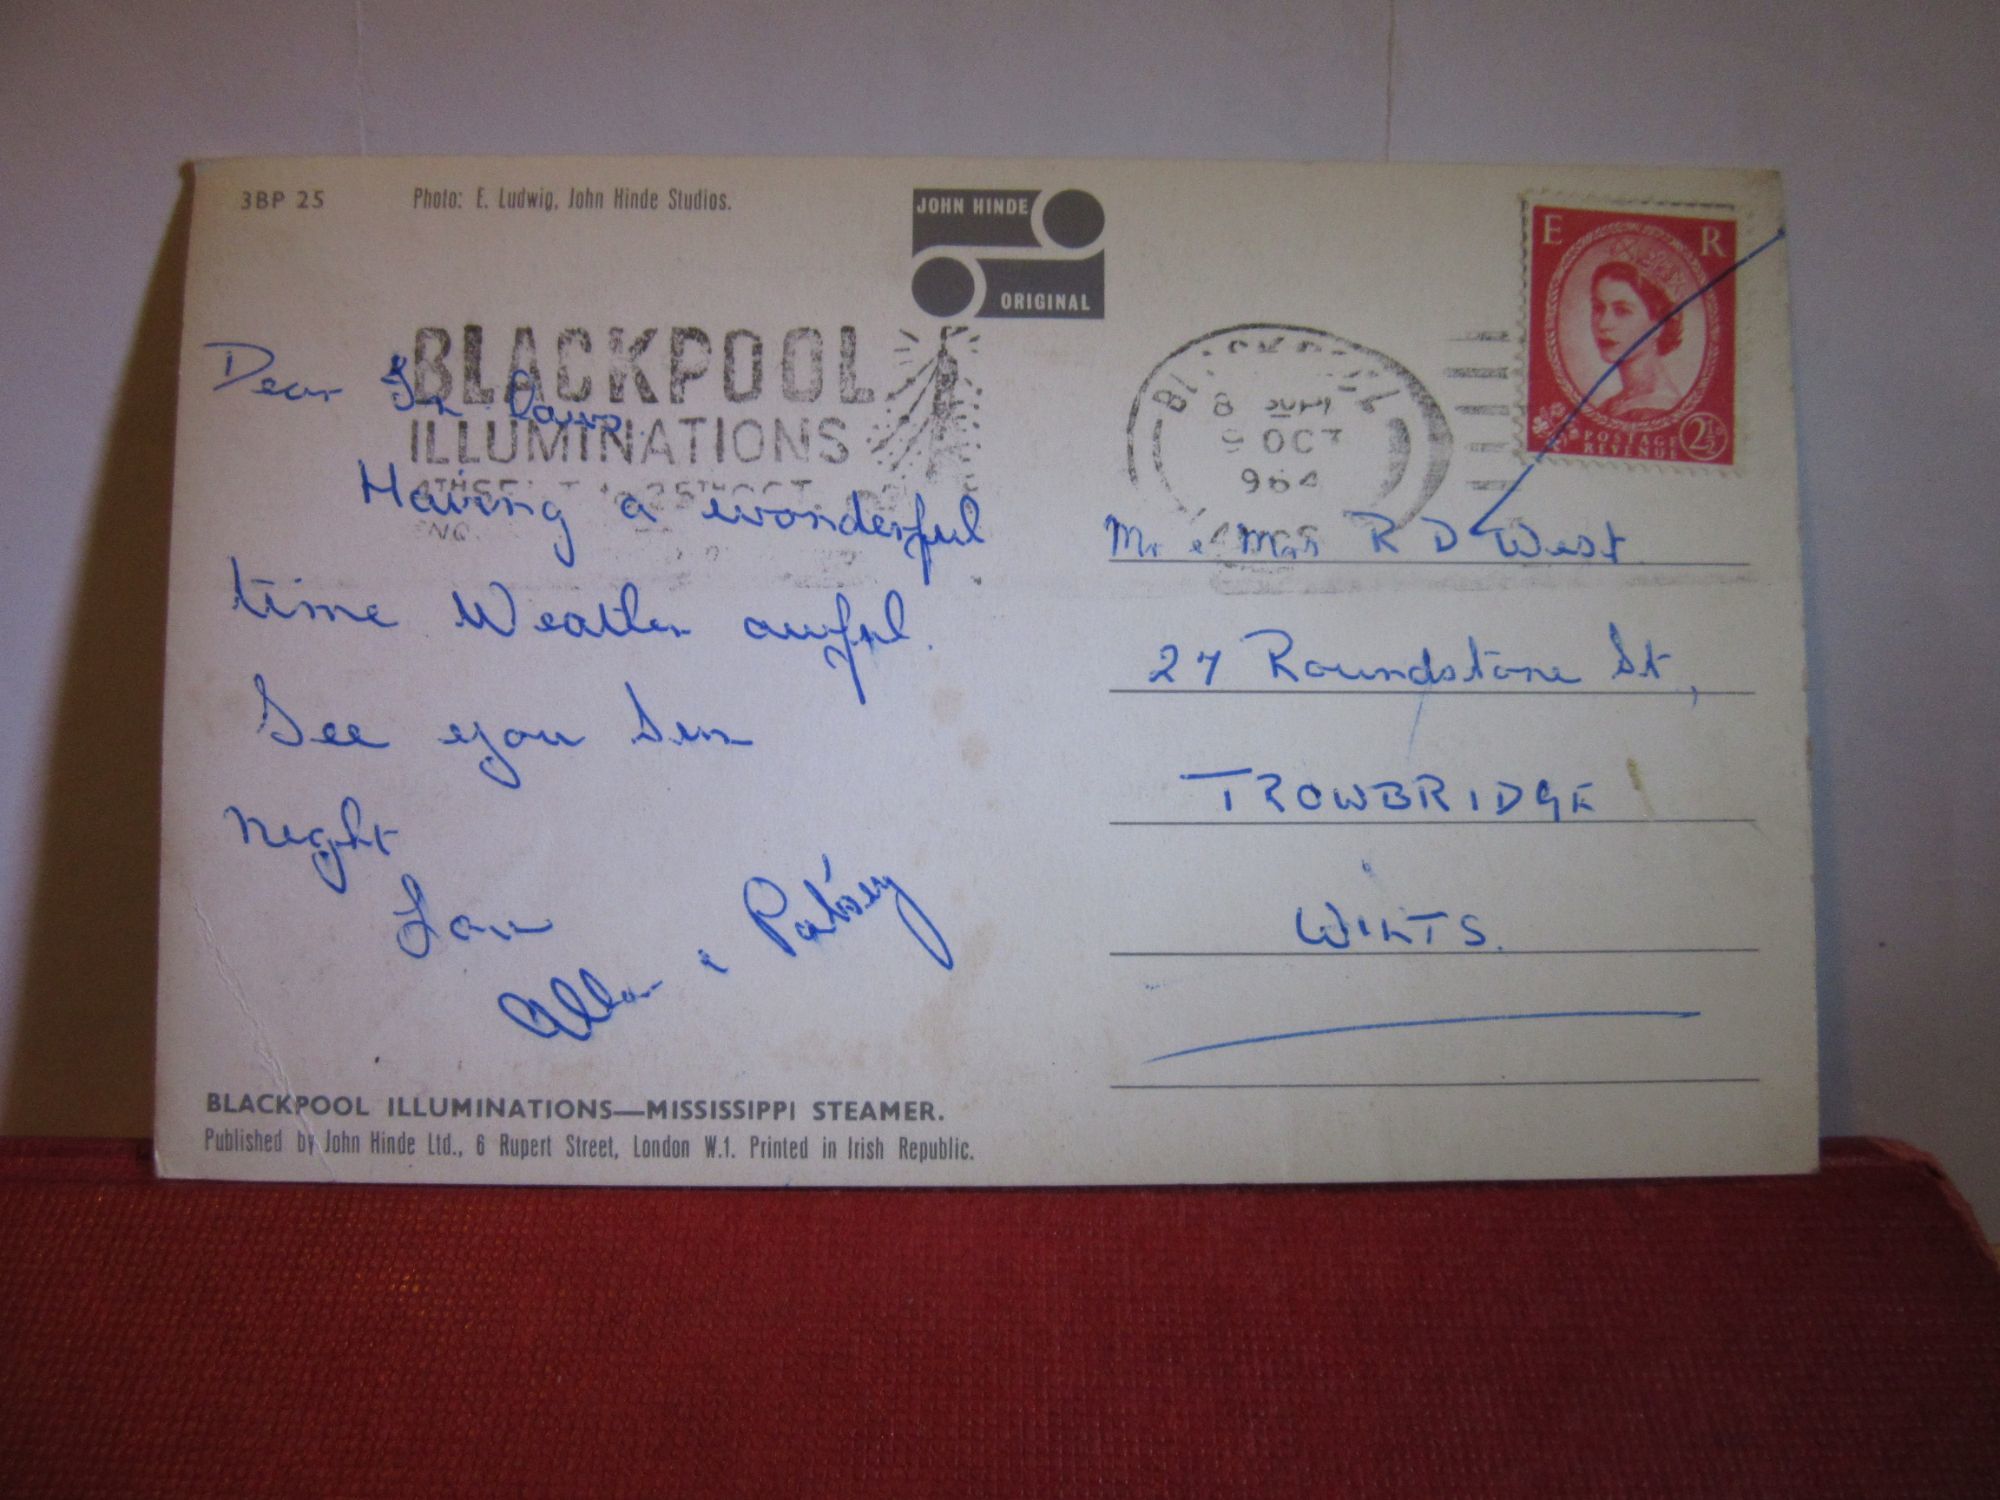 3BP 25
Photo: E. Ludwig, John Hinde Studios.
JOHN HINDE
ORIGINAL
BLACKPOOL
ILLUMINATIONS
Dear In Laws.
Having a wonderful
time Weather awful.
See you Sun
night
Love
Allan & Patsey
BLACKPOOL ILLUMINATIONS—MISSISSIPPI STEAMER.
Published by John Hinde Ltd., 6 Rupert Street, London W.1. Printed in Irish Republic.
BLACKPOOL
8
OCT
964
E R
POSTAGE
REVENUE
2½
Mr & Mrs R D West
27 Roundstone St,
TROWBRIDGE
WILTS.